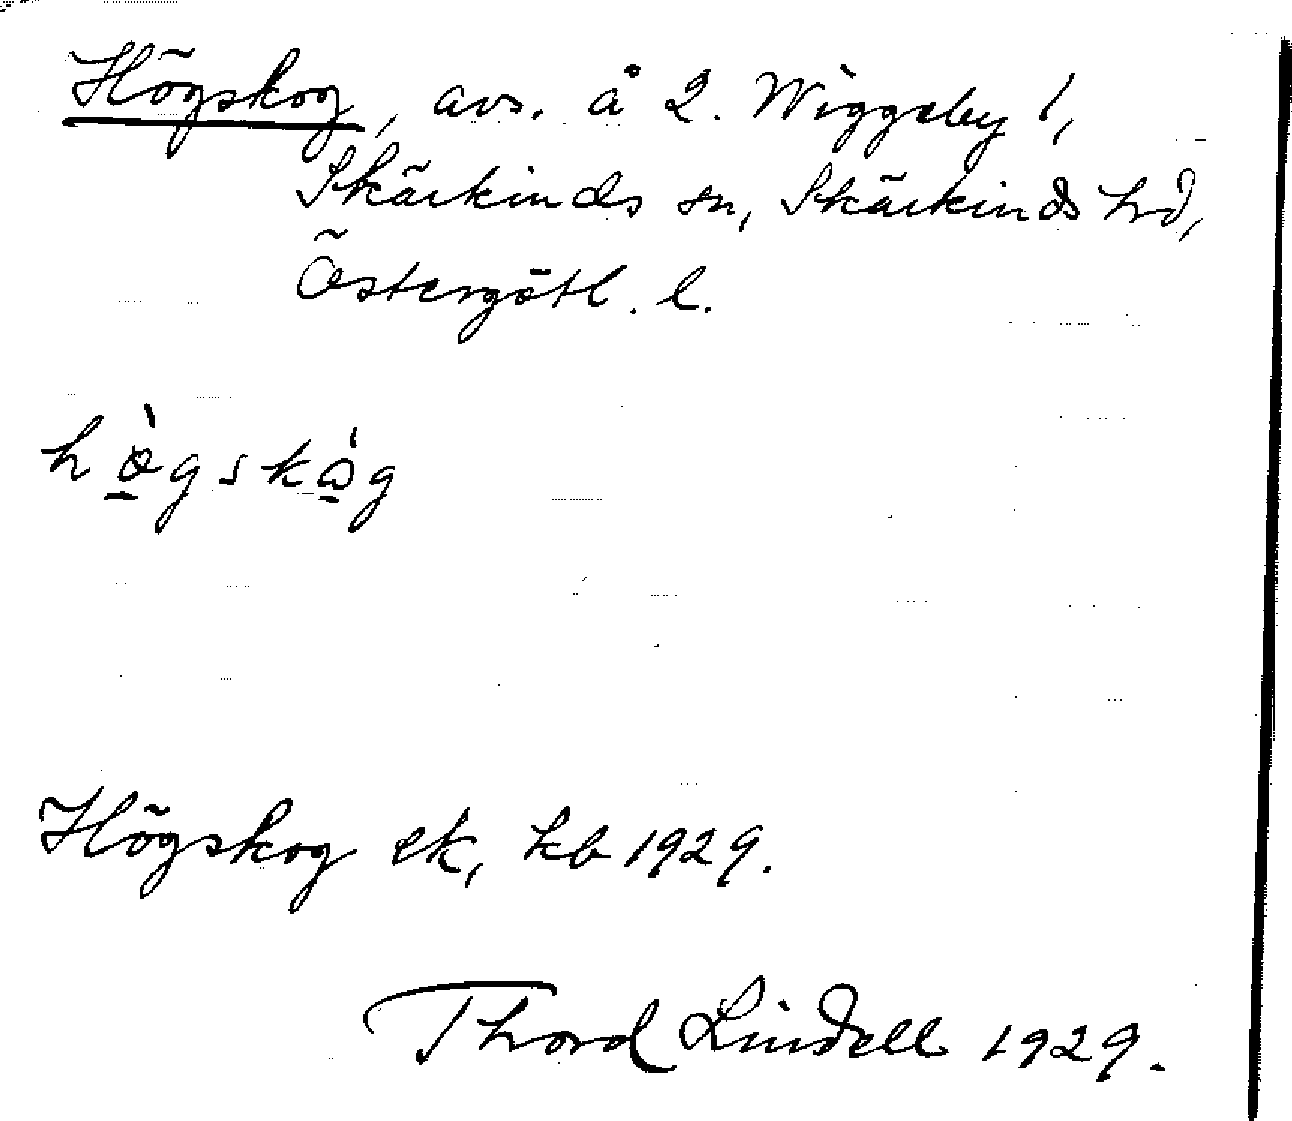 Högskog, avs. å 2. Wiggeby 1,
Skärkinds sn, Skärkinds hd,
Östergötl. l.
hø̠̀gskɷ̠̀g
Högskog ek, kb 1929.
Thord Lindell 1929.